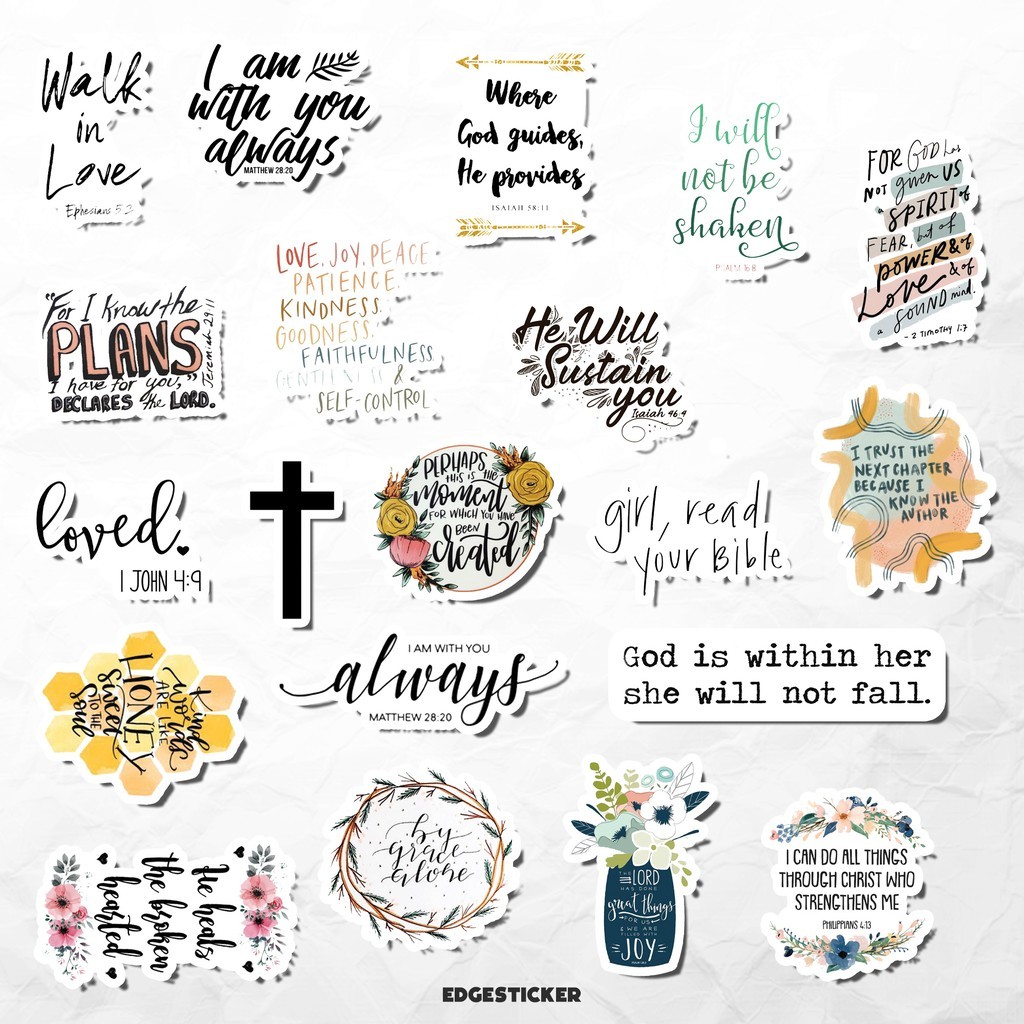 Walk
in
Love
Ephesians 5:2
I am
with you
always
MATTHEW 28:20
Where
God guides,
He provides
ISAIAH 58:11
I will
not be
shaken
PSALM 16:8
FOR GOD has
NOT given US
a SPIRIT of
FEAR, but of
POWER & of
Love & of
a SOUND mind.
- 2 TIMOTHY 1:7
"For I know the
PLANS
I have for you,"
DECLARES the LORD.
Jeremiah 29:11
LOVE, JOY, PEACE
PATIENCE,
KINDNESS,
GOODNESS,
FAITHFULNESS,
GENTLENESS &
SELF-CONTROL
He Will
Sustain
you
Isaiah 46:4
I TRUST THE
NEXT CHAPTER
BECAUSE I
KNOW THE
AUTHOR
loved.
1 JOHN 4:9
PERHAPS
THIS IS THE
Moment
FOR WHICH YOU HAVE
BEEN
Created
girl, read
your Bible
kind
words
ARE LIKE
HONEY
Sweet
TO THE
Soul
I AM WITH YOU
always
MATTHEW 28:20
God is within her
she will not fall.
He heals
the broken
hearted
by
grace
alone
THE LORD
HAS DONE
great things
FOR US
& WE ARE
FILLED WITH
JOY
I CAN DO ALL THINGS
THROUGH CHRIST WHO
STRENGTHENS ME
PHILIPPIANS 4:13
EDGESTICKER